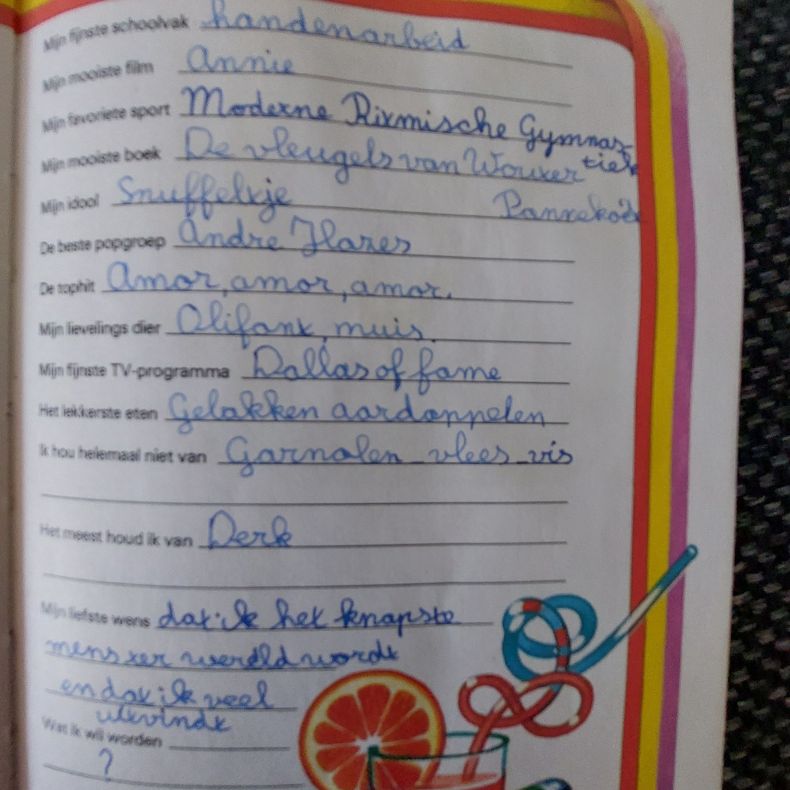 Mijn fijnste schoolvak handenarbeid
Mijn mooiste film Annie
Mijn favoriete sport Moderne Ritmische Gymnas-
tiek
Mijn mooiste boek De vleugels van Wouter
Pannekoek
Mijn idool Snuffeltje
De beste popgroep Andre Hazes
De tophit Amor, amor, amor.
Mijn lievelings dier Olifant, muis.
Mijn fijnste TV-programma Dallas of fame
Het lekkerste eten Gebakken aardappelen
Ik hou helemaal niet van Garnalen vlees vis
Het meest houd ik van Derk
Mijn liefste wens dat ik het knapste
mens ter werdld wordt
en dat ik veel
uitvindt
Wat ik wil worden
?